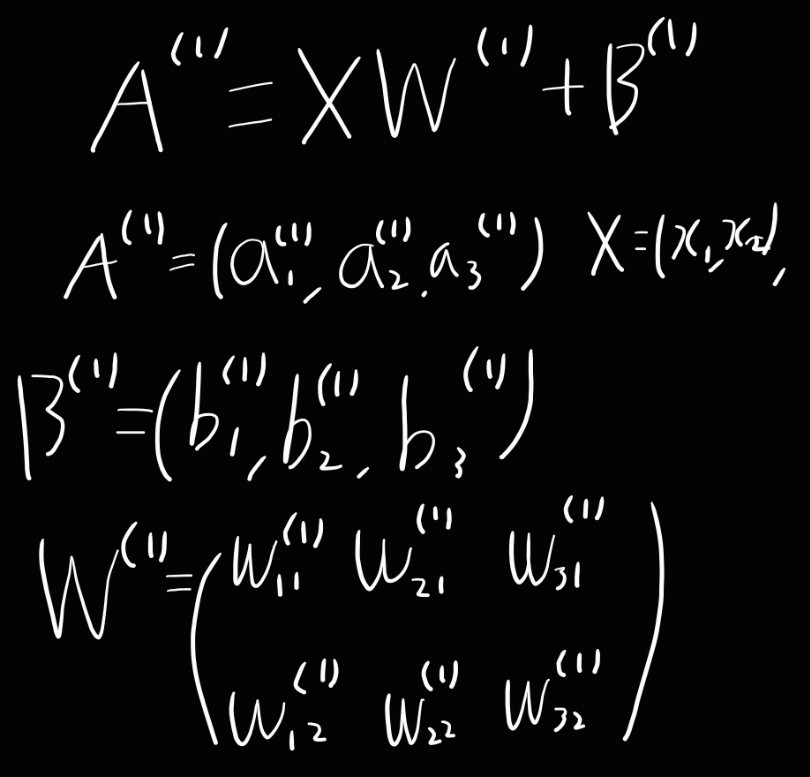 A^(1) = XW^(1) + B^(1)
A^(1) = (a_1^(1), a_2^(1), a_3^(1)) X = (x_1, x_2),
B^(1) = (b_1^(1), b_2^(1), b_3^(1))
W^(1) = (w_11^(1) w_21^(1) w_31^(1)
w_12^(1) w_22^(1) w_32^(1))